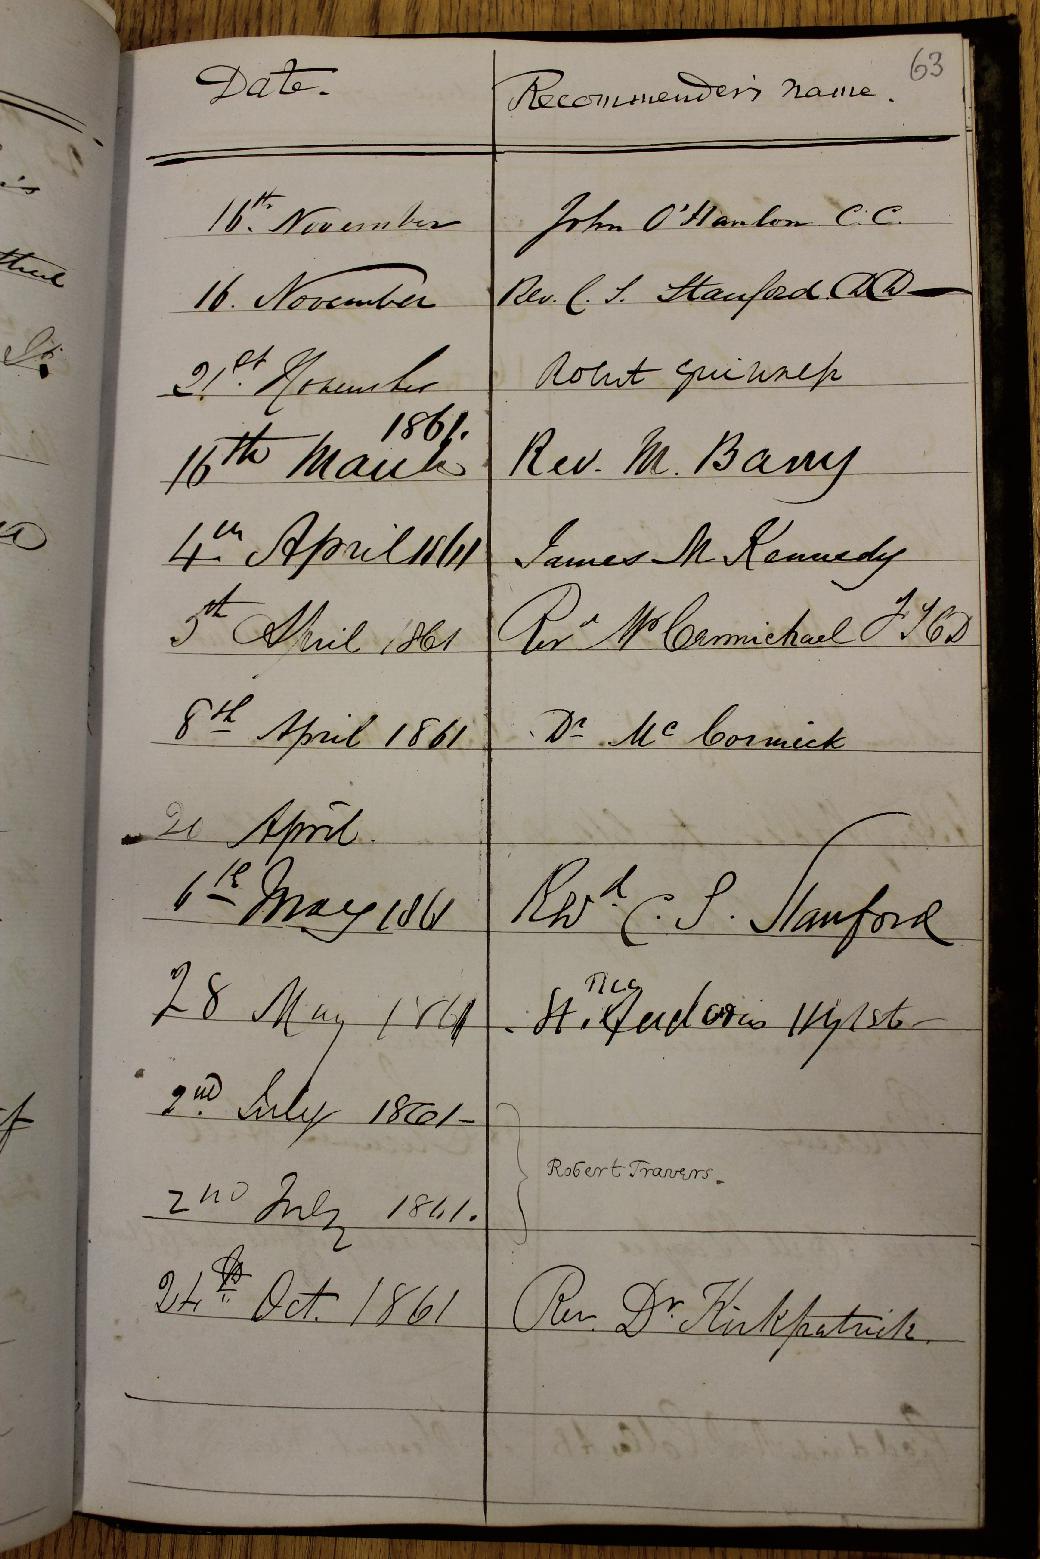 63
Date. Recommender's name.
16th. November John O'Hanlon C.C.
16. November Rev. C. S. Stanford. DD
21st. November Robert
1861.
16th March Rev. M. Barry
4th April 1861 James M Kennedy
5th April 1861 Revd Carmichael FTCD
8th April 1861 Dr McCormick
20 April.
6th May 1861 Revd. C. S. Stanford
28 May 1861
2nd. July 1861-
Robert Travers.
2nd July 1861.
24th Oct. 1861 Rev. Dr. Kirkpatrick.